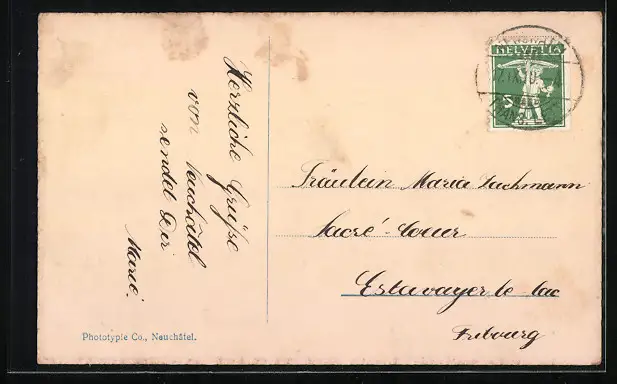 Herzliche Grüsse
von Neuchâtel
sendet Dir
Marie.
HELVETIA
5
Fräulein Maria Lachmann
Sacré-Coeur
Estavayer le Lac
Fribourg
Phototypie Co., Neuchâtel.